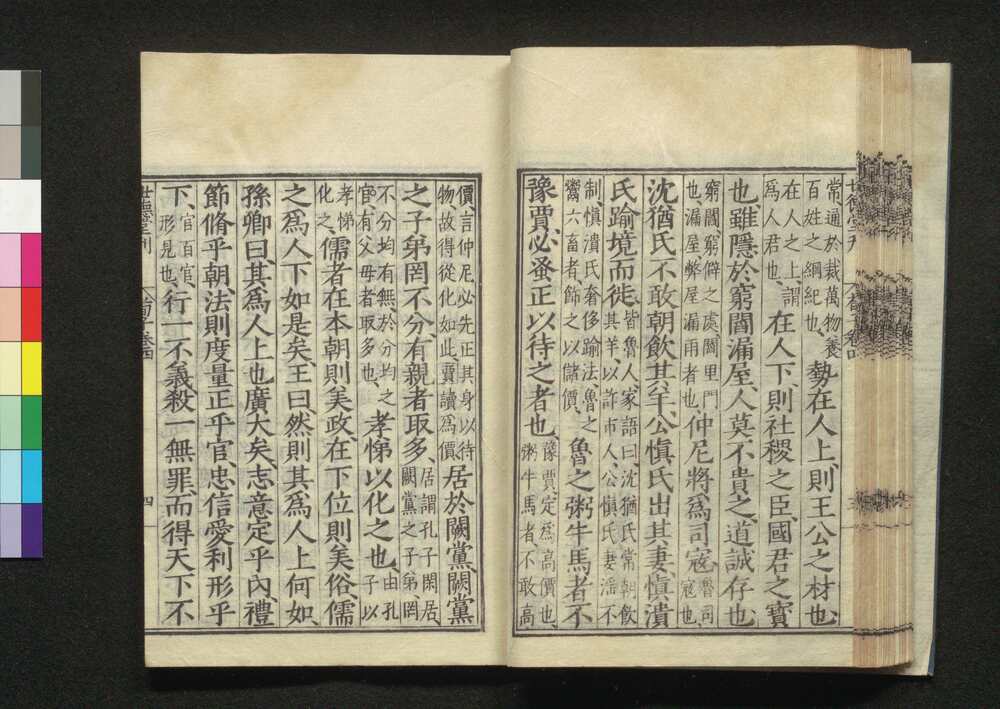 常、通於裁萬物養
百姓之綱紀也、
勢在人上、則王公之材也、
在人之上、謂
爲人君也、
在人下、則社稷之臣、國君之寶
也、雖隱於窮閻漏屋、人莫不貴之、道誠存也、
窮閻、窮僻之處、閻里門
也、漏屋弊屋漏雨者也、
仲尼將爲司寇、
魯司
寇也、
沈猶氏不敢朝飮其羊、公愼氏出其妻、愼潰
氏踰境而徙、
皆魯人、家語曰、沈猶氏常朝飮
其羊、以詐市人、公愼氏妻淫不
制、愼潰氏奢侈踰法、魯之
鬻六畜者、飾之以儲價、
魯之粥牛馬者不
豫賈、必蚤正以待之者也、
豫賈、定爲高價也、
粥牛馬者、不敢高
價、言仲尼必先正其身以待
物、故得從化如此、賈讀爲價
居於闕黨、闕黨
之子弟罔不分、有親者取多、
居謂孔子閑居、
闕黨之子弟、罔
不分均有無、於分均之
官、有父母者取多也、
孝悌以化之也、
由孔
子以
孝悌
化之、
儒者在本朝則美政、在下位則美俗、儒
之爲人下如是矣、王曰、然則其爲人上何如、
孫卿曰、其爲人上也廣大矣、志意定乎內、禮
節脩乎朝、法則度量正乎官、忠信愛利形乎
下、
官百官、
形見也、
行一不義、殺一無罪、而得天下不
世德堂刊
荀子卷四
四